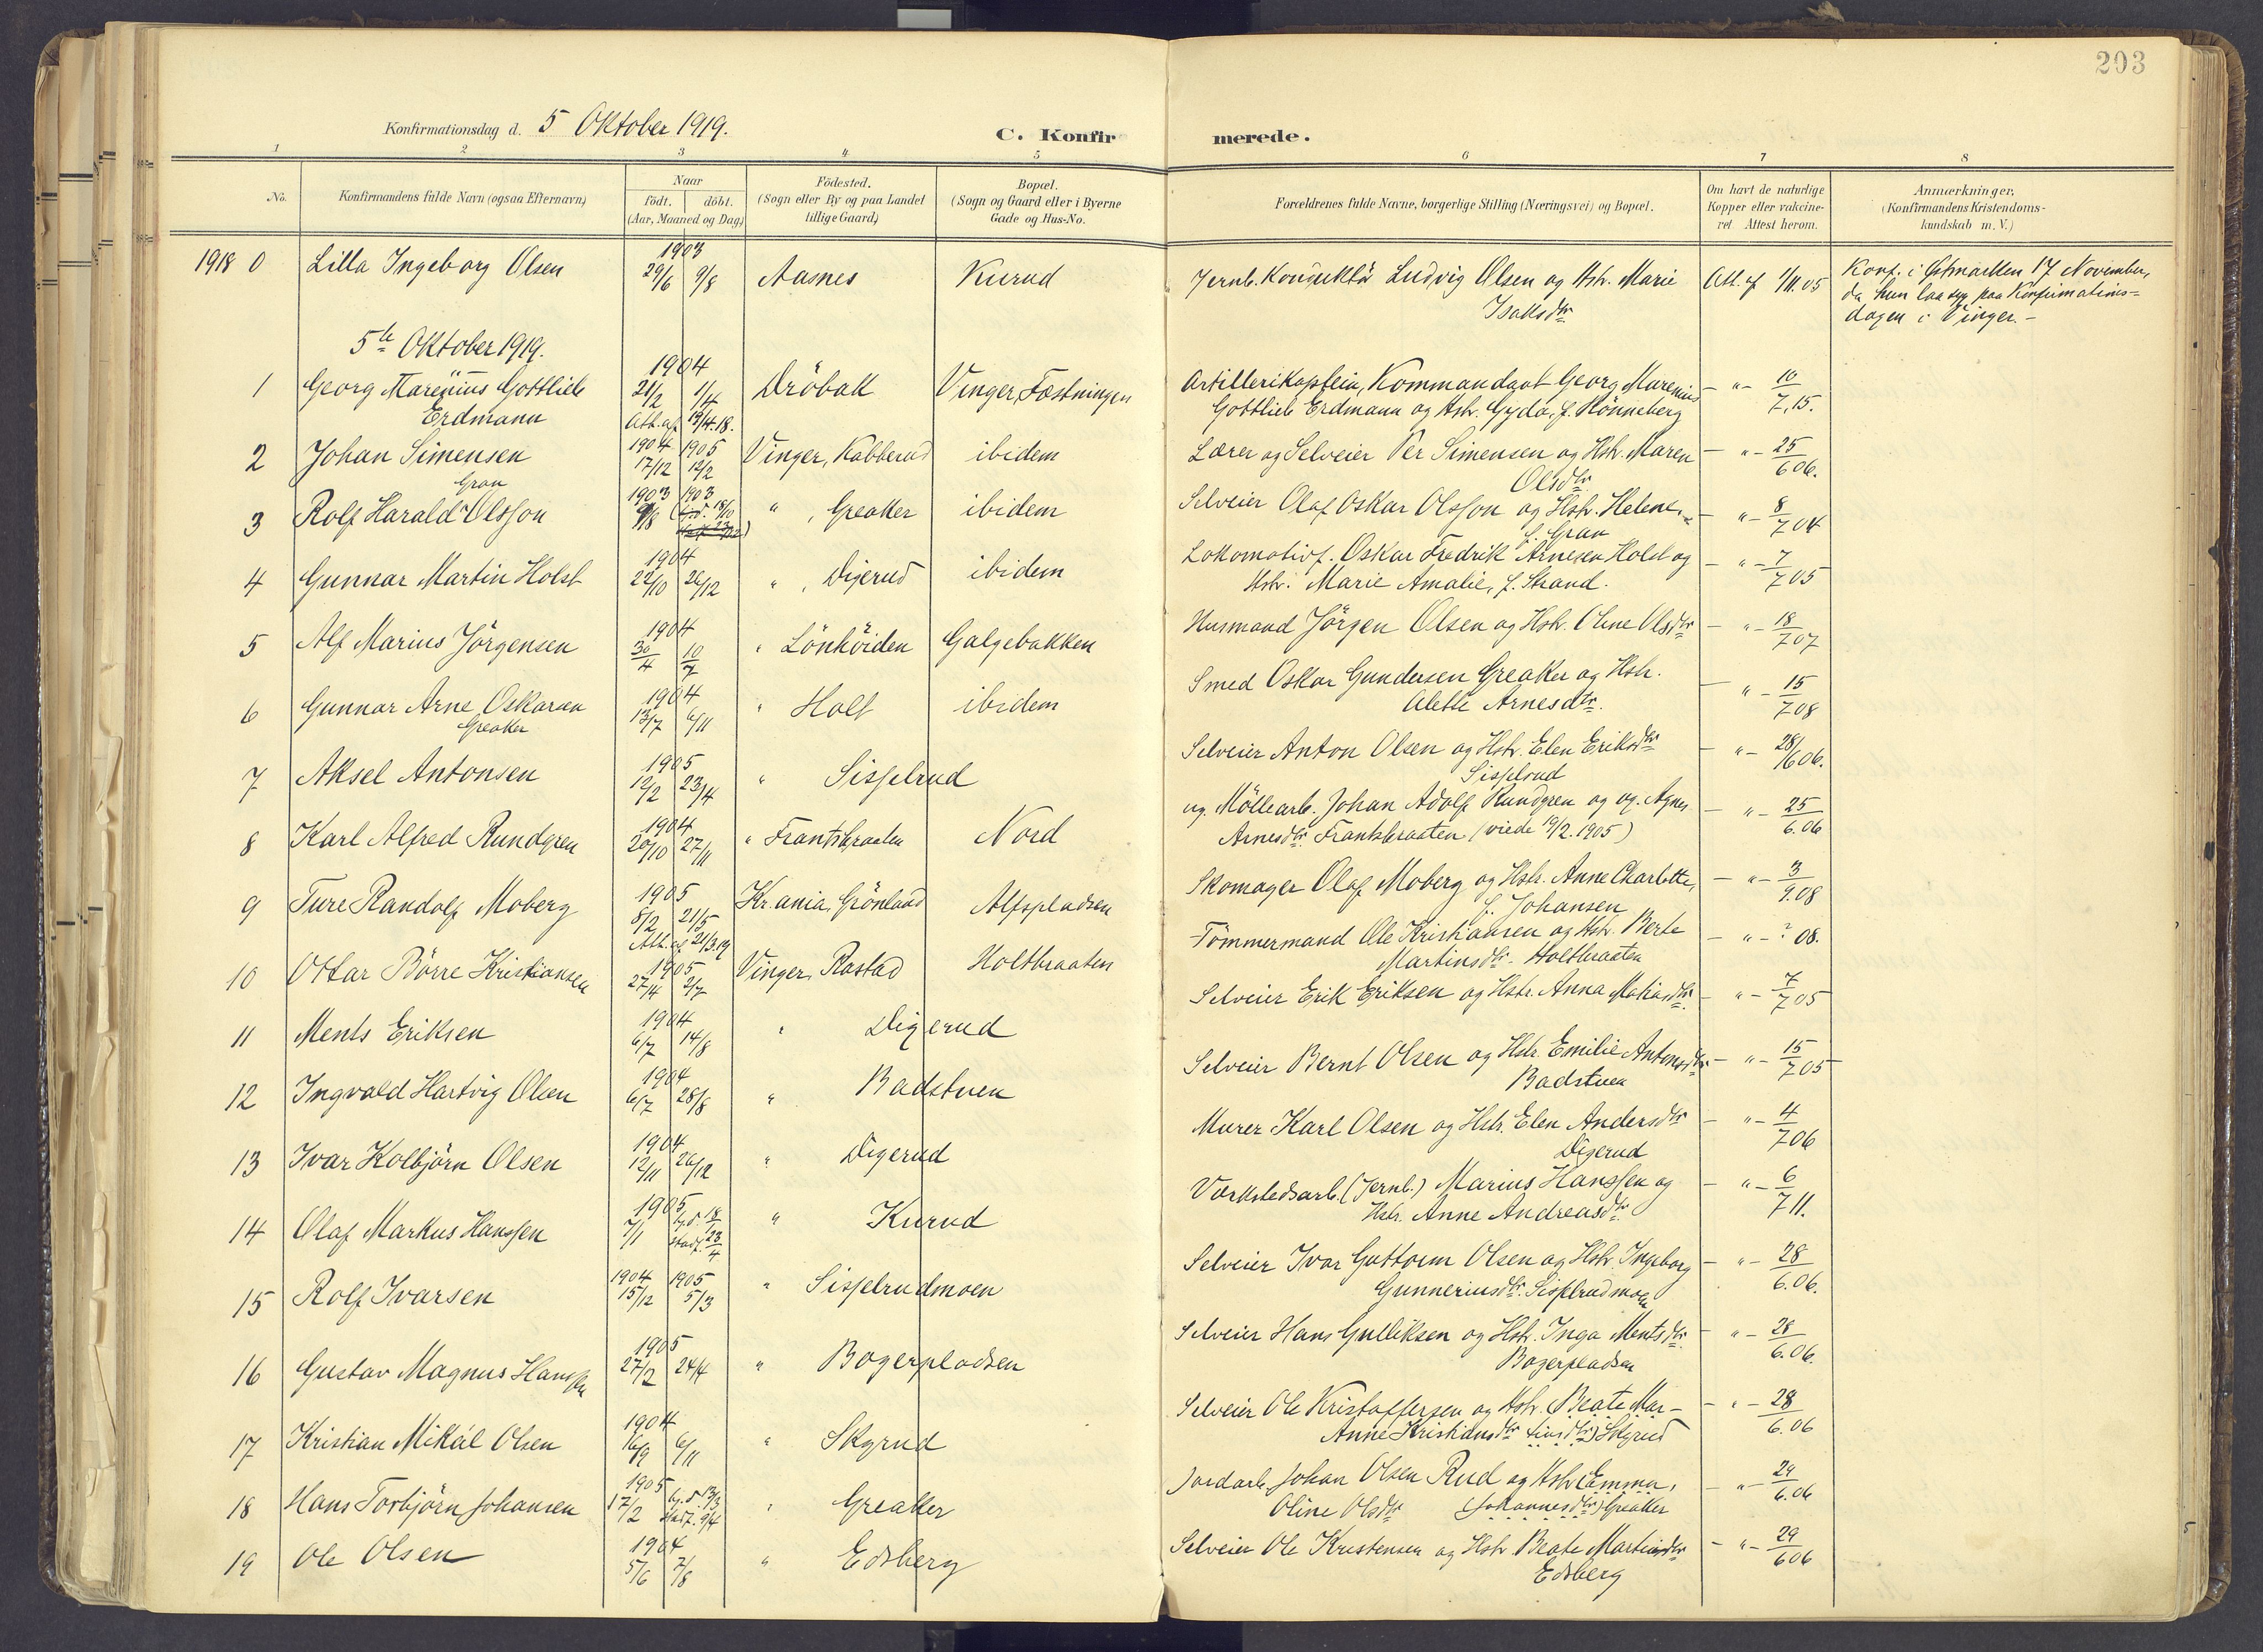 203
Konfirmationsdag d. 5 Oktober 1919.
C. Konfir merede.
1 2 3 4 5 6 7 8
No.
Konfirmandens fulde Navn (ogsaa Efternavn)
Naar
födt. döbt.
(Aar, Maaned og Dag)
Födested.
(Sogn eller By og paa Landet
tillige Gaard)
Bopæl.
(Sogn og Gaard eller i Byerne
Gade og Hus-No.
Forældrenes fulde Navne, borgerlige Stilling (Næringsvei) og Bopæl.
Om havt de naturlige
Kopper eller vakcine-
ret. Attest herom.
Anmærkninger,
(Konfirmandens Kristendoms-
kundskab m. V.)
1918 0 Lilla Ingeborg Olsen 1903 29/6 9/8 Aasnes Kurud Jernb. Konduktör Ludvig Olsen og Hstr. Marie Att. af 1/11.05
Isaksdtr
Konf. i Østmarken 17 November,
da hun laa syg paa Konfirmations-
dagen i Vinger.-
5te Oktober 1919.
1 Georg Marenius Gottlieb 1904 21/2 1/4 Dröbak Vinger, Fæstningen Artillerikaptein, Kommandant Georg Marenius - " - 10/7.15.
Erdmann Att. af 19/4.18. Gottlieb Erdmann og Hstr. Gyda, f. Rönneberg
2 Johan Simensen 1904 17/12 1905 12/2 Vinger, Kabberud ibidem Lærer og Selveier Per Simensen og Hstr. Maren - " - 25/6 06.
Olsdtr
Gran
3 Rolf Harald Olsson 1903 9/8 1903 18/10 " , Greaker ibidem Selveier Olaf Oskar Olsson og Hstr. Helene, - " - 8/7 04
f. Gran
4 Gunnar Martin Holst 1904 22/10 26/12 " , Digerud ibidem Lokomotivf. Oskar Fredrik Arnesen Holst og - " - 7/7 05
Hstr. Marie Amalie, f. Strand.
5 Alf Marius Jörgensen 1904 30/4 10/7 " Lönhöiden Galgebakken Husmand Jörgen Olsen og Hstr. Oline Olsdtr - " - 18/7 07
6 Gunnar Arne Oskarsen 1904 13/7 6/11 " Holt ibidem Smed Oskar Gundersen Greaker og Hstr. - " - 15/7 08
Greaker Alette Arnesdtr.
7 Aksel Antonsen 1905 12/2 23/4 " Sisselrud Selveier Anton Olsen og Hstr. Elen Eriksdtr - " - 28/6 06.
Sisselrud
8 Karl Alfred Rundgren 1904 20/10 27/11 " Frantsbraaten Nord ug. Möllearb. Johan Adolf Rundgren og ug. Agnes - " - 25/6.06
Arnesdtr. Frantsbraaten (viede 19/2.1905)
9 Ture Randolf Moberg 1905 8/2 21/5 Kr.ania, Grönland Alfspladsen Skomager Olaf Moberg og Hstr. Anne Charlotte, - " - 3/9.08
Att. af 21/3.19 f. Johansen
10 Ottar Börre Kristiansen 1905 27/4 2/7 Vinger, Rastad Holtbraaten Tömmermand Ole Kristiansen og Hstr. Berte - " - ? 08.
Martinsdtr. Holtbraaten
11 Ments Eriksen 1904 6/7 14/8 " Digerud Selveier Erik Eriksen og Hstr. Anna Matiasdtr. - " - 7/7 05
12 Ingvald Hartvig Olsen 1904 6/7 28/8 " Badstuen Selveier Bernt Olsen og Hstr. Emilie Antonsdtr - " - 15/7 05
Badstuen
13 Ivar Kolbjörn Olsen 1904 12/11 26/12 " Digerud Murer Karl Olsen og Hstr. Elen Andersdtr - " - 4/7 06
Digerud
14 Olaf Markus Hanssen 1905 7/1 hj.d. 18/2 stadf. 23/4 " Kurud Værkstedsarb. (Jernb.) Marius Hanssen og - " - 6/7 11.
Hstr. Anne Andreasdtr.
15 Rolf Ivarsen 1904 15/12 1905 5/3 " Sisselrudmoen Selveier Ivar Guttorm Olsen og Hstr. Ingeborg - " - 28/6.06.
Gunneriusdtr. Sisselrudmoen
16 Gustav Magnus Hanssen 1905 27/2 24/4 " Bogerpladsen Selveier Hans Gulliksen og Hstr. Inga Mentsdtr. - " - 28/6.06.
Bogerpladsen
17 Kristian Mikal Olsen 1904 16/9 6/11 " Skyrud Selveier Ole Kristoffersen og Hstr. Beate Mar- - " - 28/6.06
Anne Kristiansdtr tinsdtr) Skyrud
18 Hans Torbjörn Johansen 1905 17/2 hj.d. 13/3 stadf. 9/4 " Greaker Jordarb. Johan Olsen Rud og Hstr. Emma, - " - 29/6.06
Oline Olsdtr (Johannesdtr) Greaker
19 Ole Olsen 1904 5/6 7/8 " Edsberg Selveier Ole Kristensen og Hstr. Beate Martinsdtr - " - 29/6 06
Edsberg